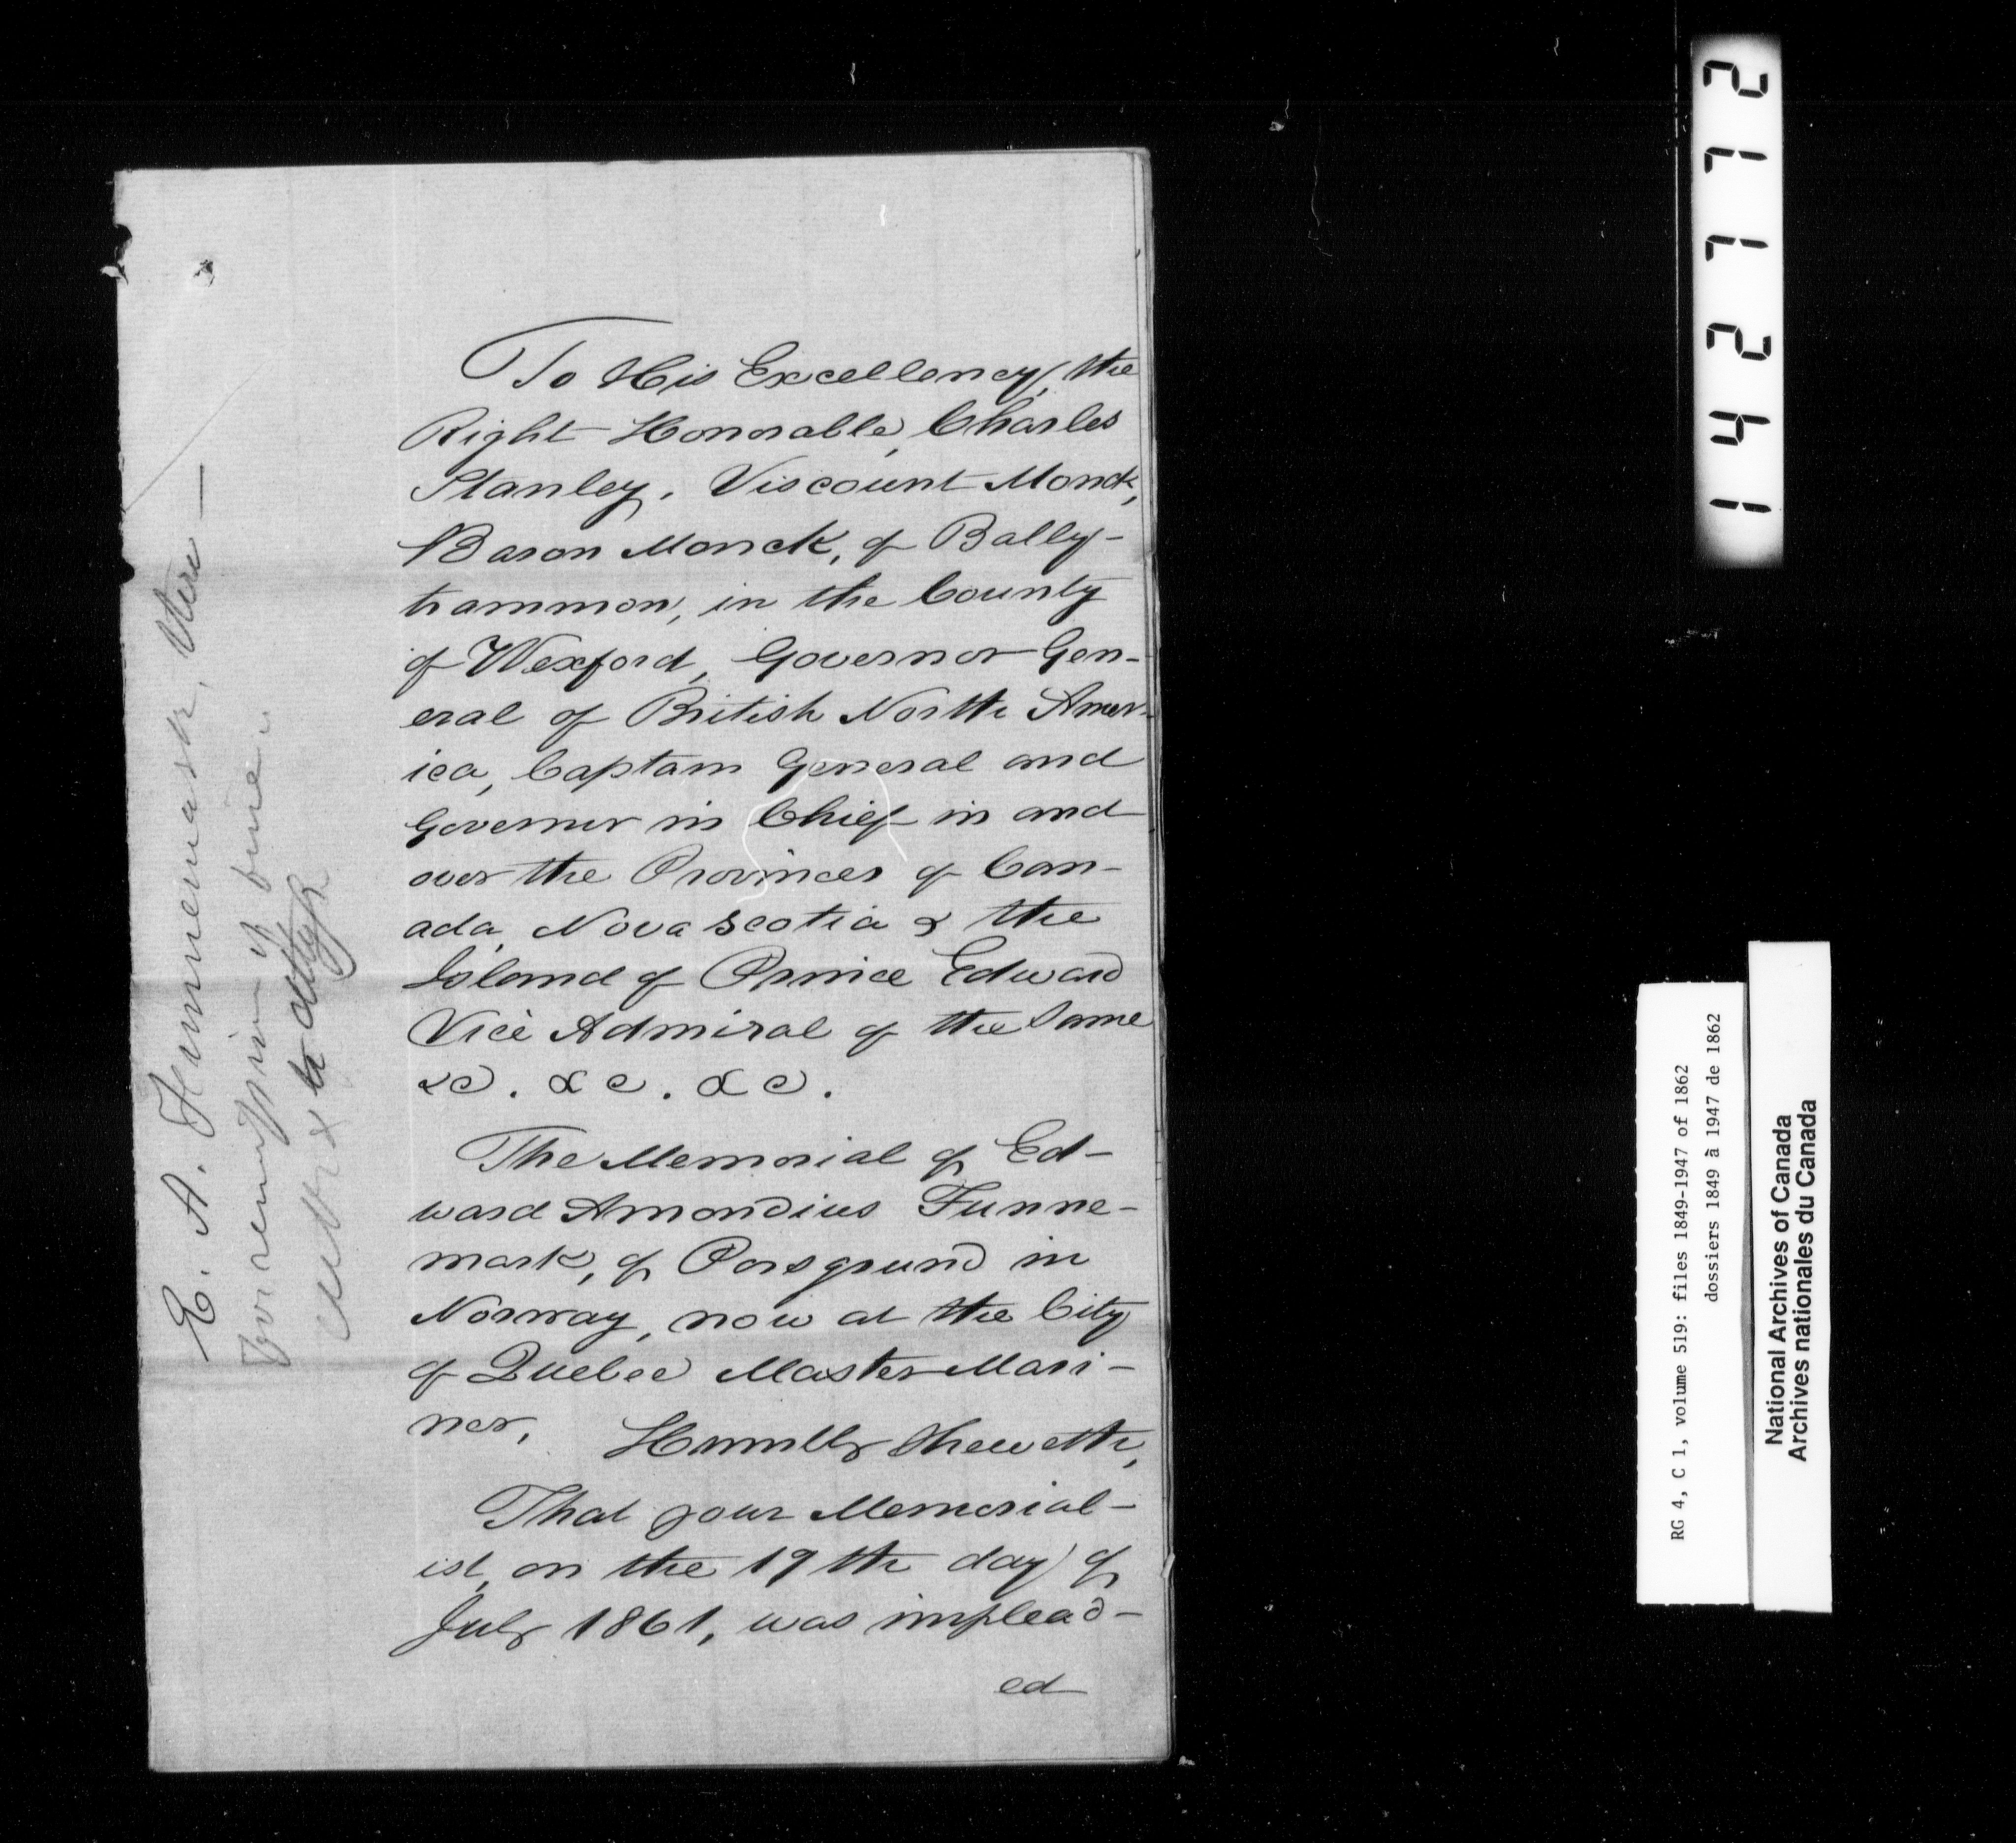 E. A. Funnemark, there —
For remission of fine.
& to atty
To His Excellency, the
Right Honorable, Charles
Stanley, Viscount Monck,
Baron Monck, of Bally-
trammon, in the County
of Wexford, Governor Gen-
eral of British North Amer-
ica, Captain General and
Governor in Chief in and
over the Provinces of Can-
ada, Nova Scotia & the
Island of Prince Edward
Vice Admiral of the Same
&c. &c. &c.
The Memorial of Ed-
ward Amondius Funne-
mark, of Porsgrund in
Norway, now at the City
of Quebec Master Mari-
ner,
Humbly Sheweth,
That your Memorial-
ist, on the 19th day of
July 1861, was implead-
ed
142772
RG 4, C 1, volume 519: files 1849-1947 of 1862
dossiers 1849 à 1947 de 1862
National Archives of Canada
Archives nationales du Canada